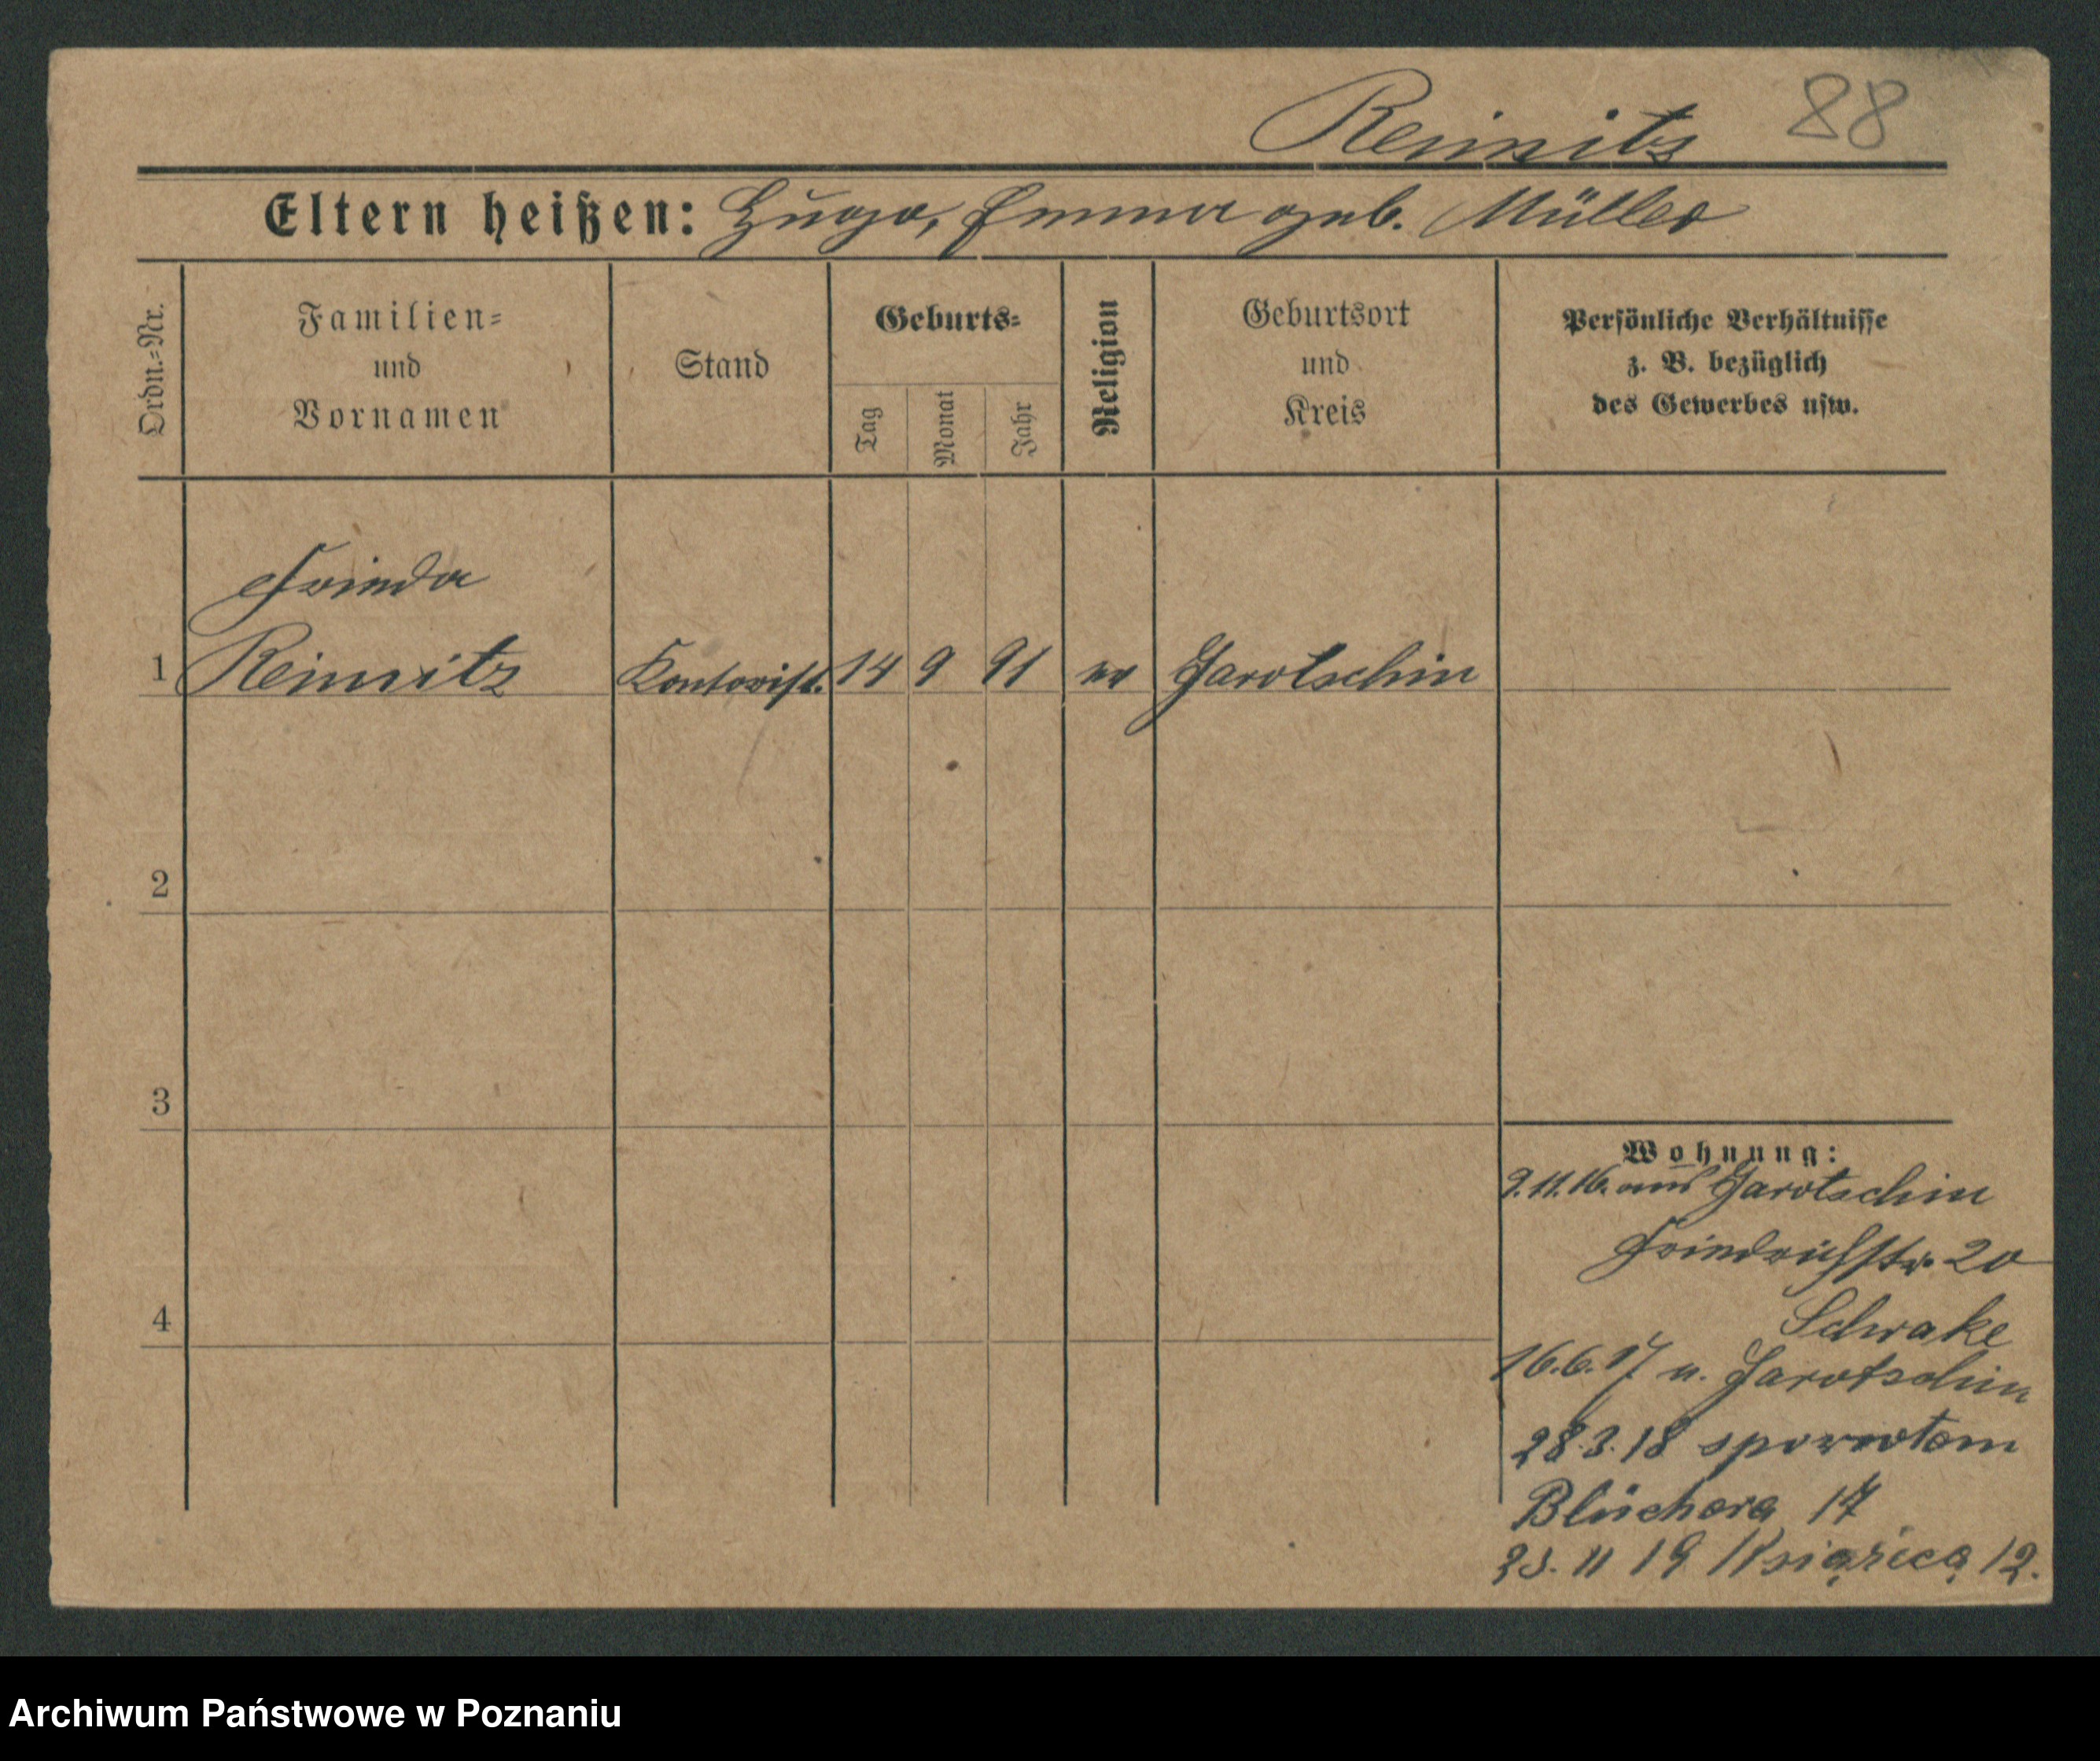 Reimnitz 88
Eltern heißen: Hugo, Emma geb. Müller
Ordn.=Nr.
Familien=
und
Vornamen
Stand
Geburts=
Tag
Monat
Jahr
Religion
Geburtsort
und
Kreis
Persönliche Verhältnisse
z. B. bezüglich
des Gewerbes usw.
Frieda
1 Reimnitz Kontorist. 14 9 91 ev Jarotschin
2
3
4
Wohnung:
9.11.16. aus Jarotschin
Friedrichstr. 20
Schwake
16.6.17 n. Jarotschin
28.3.18 spowrotem
Blüchera 17
23. 11 19 Książęca 12.
Archiwum Państwowe w Poznaniu